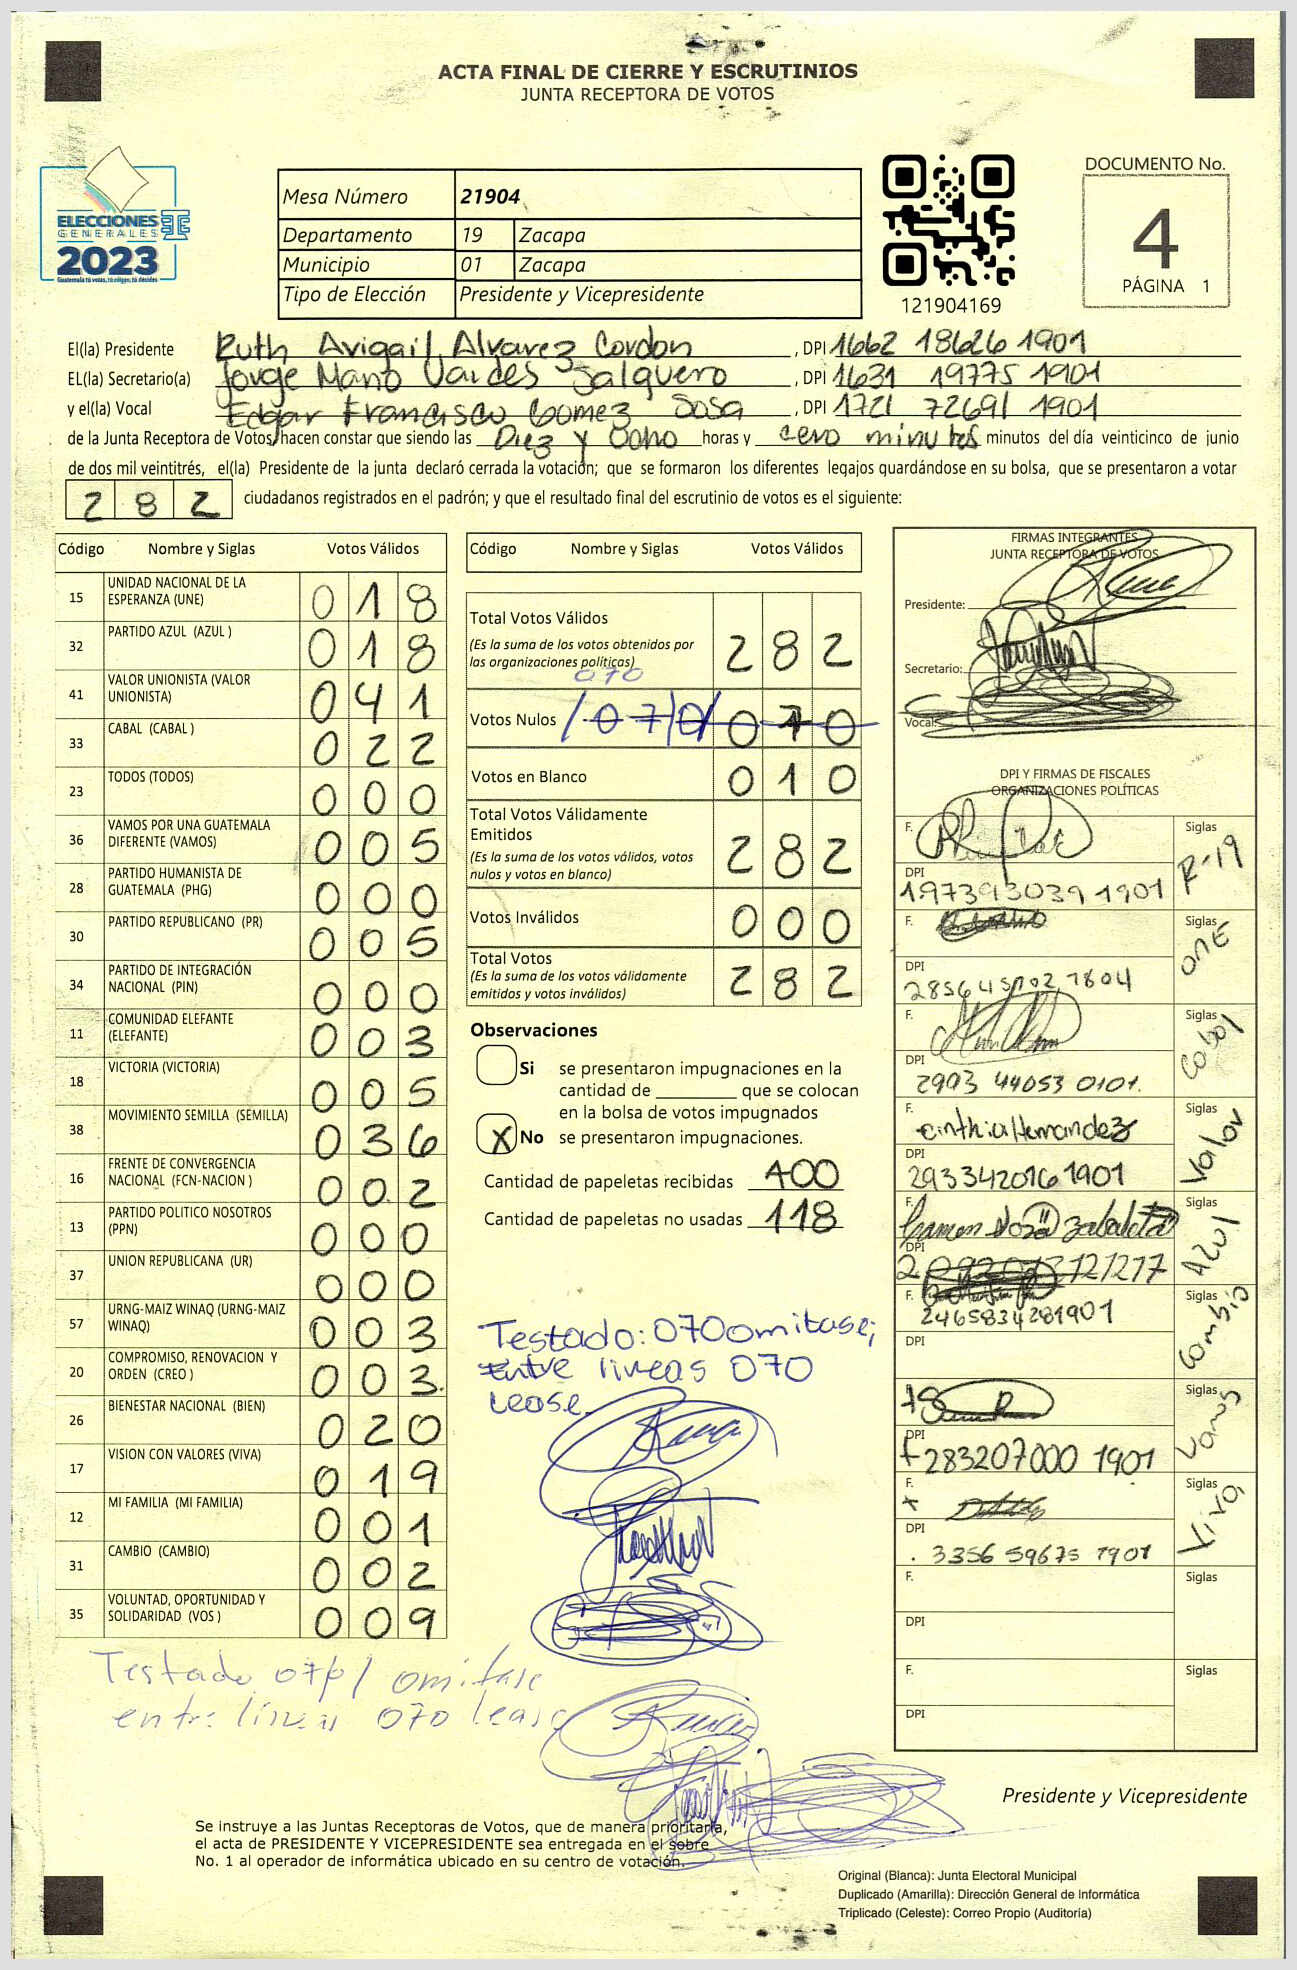 ACTA FINAL DE CIERRE Y ESCRUTINIOS
JUNTA RECEPTORA DE VOTOS
ELECCIONES
GENERALES
2023
Guatemala tú votas, tú eliges, tú decides
Mesa Número 21904
Departamento 19 Zacapa
Municipio 01 Zacapa
Tipo de Elección Presidente y Vicepresidente
121904169
DOCUMENTO No.
4
PÁGINA 1
El(la) Presidente Ruth Avigail Alvarez Cordon, DPI 1662 18626 1901
EL(la) Secretario(a) Jorge Mario Valdes Salguero, DPI 1631 19775 1901
y el(la) Vocal Edgar Francisco Gomez Sosa, DPI 1721 72691 1901
de la Junta Receptora de Votos, hacen constar que siendo las Diez y Ocho horas y cero minutos minutos del día veinticinco de junio
de dos mil veintitrés, el(la) Presidente de la junta declaró cerrada la votación; que se formaron los diferentes legajos guardándose en su bolsa, que se presentaron a votar
282 ciudadanos registrados en el padrón; y que el resultado final del escrutinio de votos es el siguiente:
Código Nombre y Siglas Votos Válidos
15 UNIDAD NACIONAL DE LA ESPERANZA (UNE) 018
32 PARTIDO AZUL (AZUL ) 018
41 VALOR UNIONISTA (VALOR UNIONISTA) 041
33 CABAL (CABAL ) 022
23 TODOS (TODOS) 000
36 VAMOS POR UNA GUATEMALA DIFERENTE (VAMOS) 005
28 PARTIDO HUMANISTA DE GUATEMALA (PHG) 000
30 PARTIDO REPUBLICANO (PR) 005
34 PARTIDO DE INTEGRACIÓN NACIONAL (PIN) 000
11 COMUNIDAD ELEFANTE (ELEFANTE) 003
18 VICTORIA (VICTORIA) 005
38 MOVIMIENTO SEMILLA (SEMILLA) 036
16 FRENTE DE CONVERGENCIA NACIONAL (FCN-NACION ) 002
13 PARTIDO POLITICO NOSOTROS (PPN) 000
37 UNION REPUBLICANA (UR) 000
57 URNG-MAIZ WINAQ (URNG-MAIZ WINAQ) 003
20 COMPROMISO, RENOVACION Y ORDEN (CREO ) 003
26 BIENESTAR NACIONAL (BIEN) 020
17 VISION CON VALORES (VIVA) 019
12 MI FAMILIA (MI FAMILIA) 001
31 CAMBIO (CAMBIO) 002
35 VOLUNTAD, OPORTUNIDAD Y SOLIDARIDAD (VOS ) 009
Testado 070 omitase
entre líneas 070 lease
Código Nombre y Siglas Votos Válidos
Total Votos Válidos 282
(Es la suma de los votos obtenidos por
las organizaciones políticas)
070
Votos Nulos /070/ 070
Votos en Blanco 010
Total Votos Válidamente
Emitidos 282
(Es la suma de los votos válidos, votos
nulos y votos en blanco)
Votos Inválidos 000
Total Votos 282
(Es la suma de los votos válidamente
emitidos y votos inválidos)
Observaciones
Si se presentaron impugnaciones en la
cantidad de ________ que se colocan
en la bolsa de votos impugnados
X No se presentaron impugnaciones.
Cantidad de papeletas recibidas 400
Cantidad de papeletas no usadas 118
Testado: 070 omitase;
Entre lineas 070
Lease.
FIRMAS INTEGRANTES
JUNTA RECEPTORA DE VOTOS
Presidente:
Secretario:
Vocal:
DPI Y FIRMAS DE FISCALES
ORGANIZACIONES POLÍTICAS
F. Siglas R-19
DPI 197393039 1901
F. Siglas UNE
DPI
F. Siglas Cabal
DPI 2993 44053 0101.
F. Cinthia Hernandez Siglas Valor
DPI 2933420161901
F. Siglas Azul
DPI
F. Siglas Cambio
2465834281901
DPI
F. Siglas Vamos
DPI 283207000 1901
F. Siglas Viva
DPI 3356 59675 1901
F. Siglas
DPI
F. Siglas
DPI
Presidente y Vicepresidente
Se instruye a las Juntas Receptoras de Votos, que de manera prioritaria,
el acta de PRESIDENTE Y VICEPRESIDENTE sea entregada en el sobre
No. 1 al operador de informática ubicado en su centro de votación.
Original (Blanca): Junta Electoral Municipal
Duplicado (Amarilla): Dirección General de Informática
Triplicado (Celeste): Correo Propio (Auditoría)